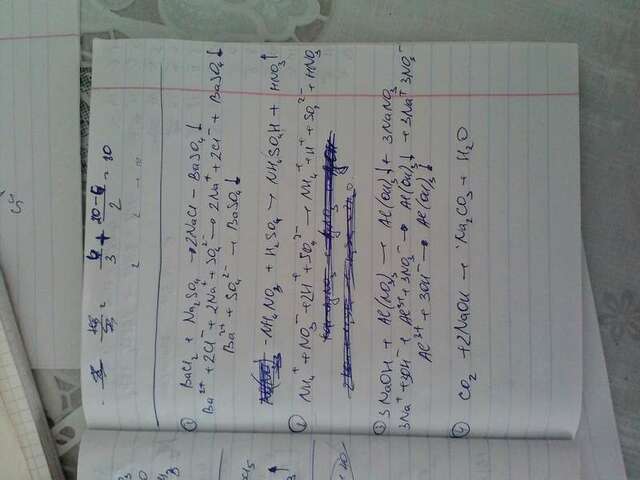 4/3 + 20-4/2 = 10
① BaCl2 + Na2SO4 → 2NaCl - BaSO4↓
Ba2+ + 2Cl- + 2Na+ + SO42- → 2Na+ + 2Cl- + BaSO4↓
Ba2+ + SO42- → BaSO4↓
② NH4NO3 + H2SO4 → NH4SO4H + HNO3↑
NH4+ + NO3- + 2H+ + SO42- → NH4+ + H+ + SO42- + HNO3
③ 3NaOH + Al(NO3)3 → Al(OH)3↓ + 3NaNO3
3Na+ + 3OH- + Al3+ + 3NO3- → Al(OH)3↓ + 3Na+ 3NO3-
Al3+ + 3OH- → Al(OH)3↓
④ CO2 + 2NaOH → Na2CO3 + H2O